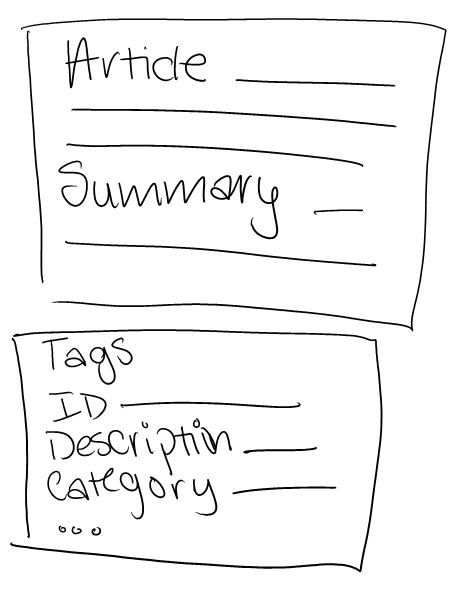 Article
Summary
Tags
ID
Description
Category
...